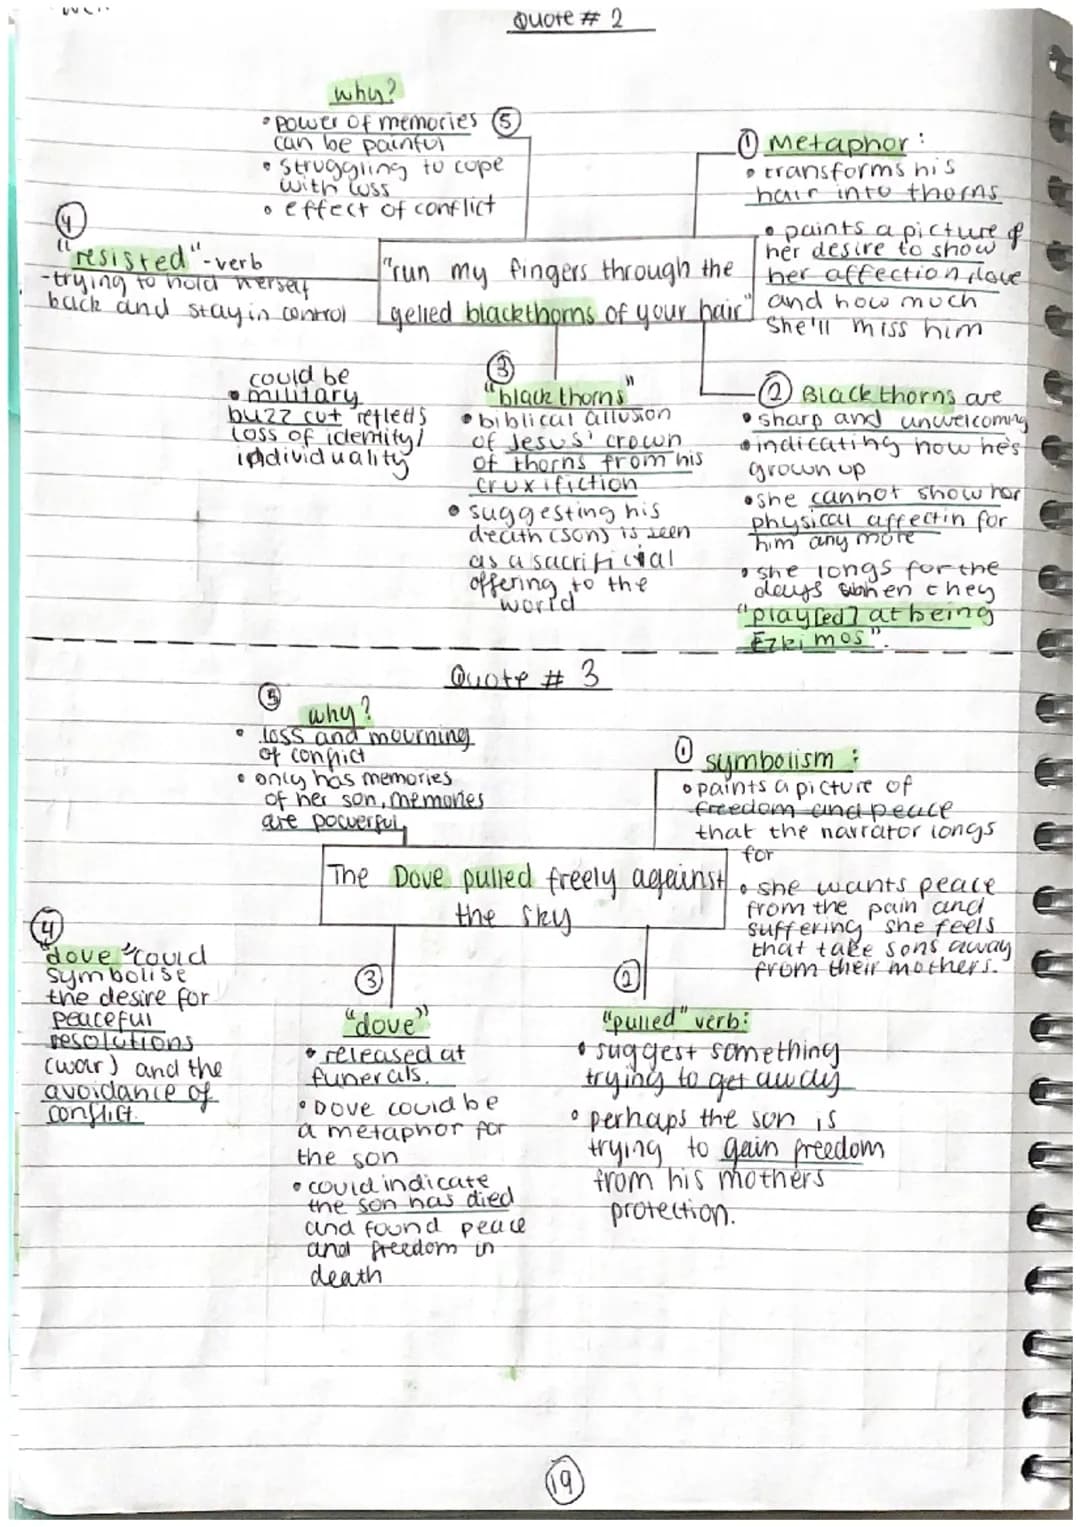 Quote # 2
why?
• power of memories ⑤
can be painful
• struggling to cope
with loss
• effect of conflict
① Metaphor :
• transforms his
hair into thorns
• paints a picture of
her desire to show
her affection, love
and how much
she'll miss him
④
"resisted" - verb
- trying to hold herself
back and stay in control
"run my fingers through the
gelled blackthorns of your hair"
could be
• military
buzz cut reflects
loss of identity/
individuality
③
"black thorns"
• biblical allusion
of Jesus' crown
of thorns from his
cruxifiction
• suggesting his
death (sons) is seen
as a sacrificial
offering to the
world
② Blackthorns are
• sharp and unwelcoming
• indicating how he's
grown up
• she cannot show her
physical affectin for
him any more
• she longs for the
days when they
"play[ed] at being
Ezkimos".
Quote # 3
⑤
why?
• loss and mourning
of conflict
• only has memories
of her son, memories
are powerful
① symbolism :
• paints a picture of
freedom and peace
that the narrator longs
for
• she wants peace
from the pain and
suffering she feels
that take sons away
from their mothers.
The Dove pulled freely against
the sky
④
"dove" could
symbolise
the desire for
peaceful
resolutions
(war) and the
avoidance of
conflict.
③
"dove"
• released at
funerals.
• Dove could be
a metaphor for
the son
• could indicate
the son has died
and found peace
and freedom in
death
②
"pulled" verb:
• suggest something
trying to get away
• perhaps the son is
trying to gain freedom
from his mothers
protection.
19